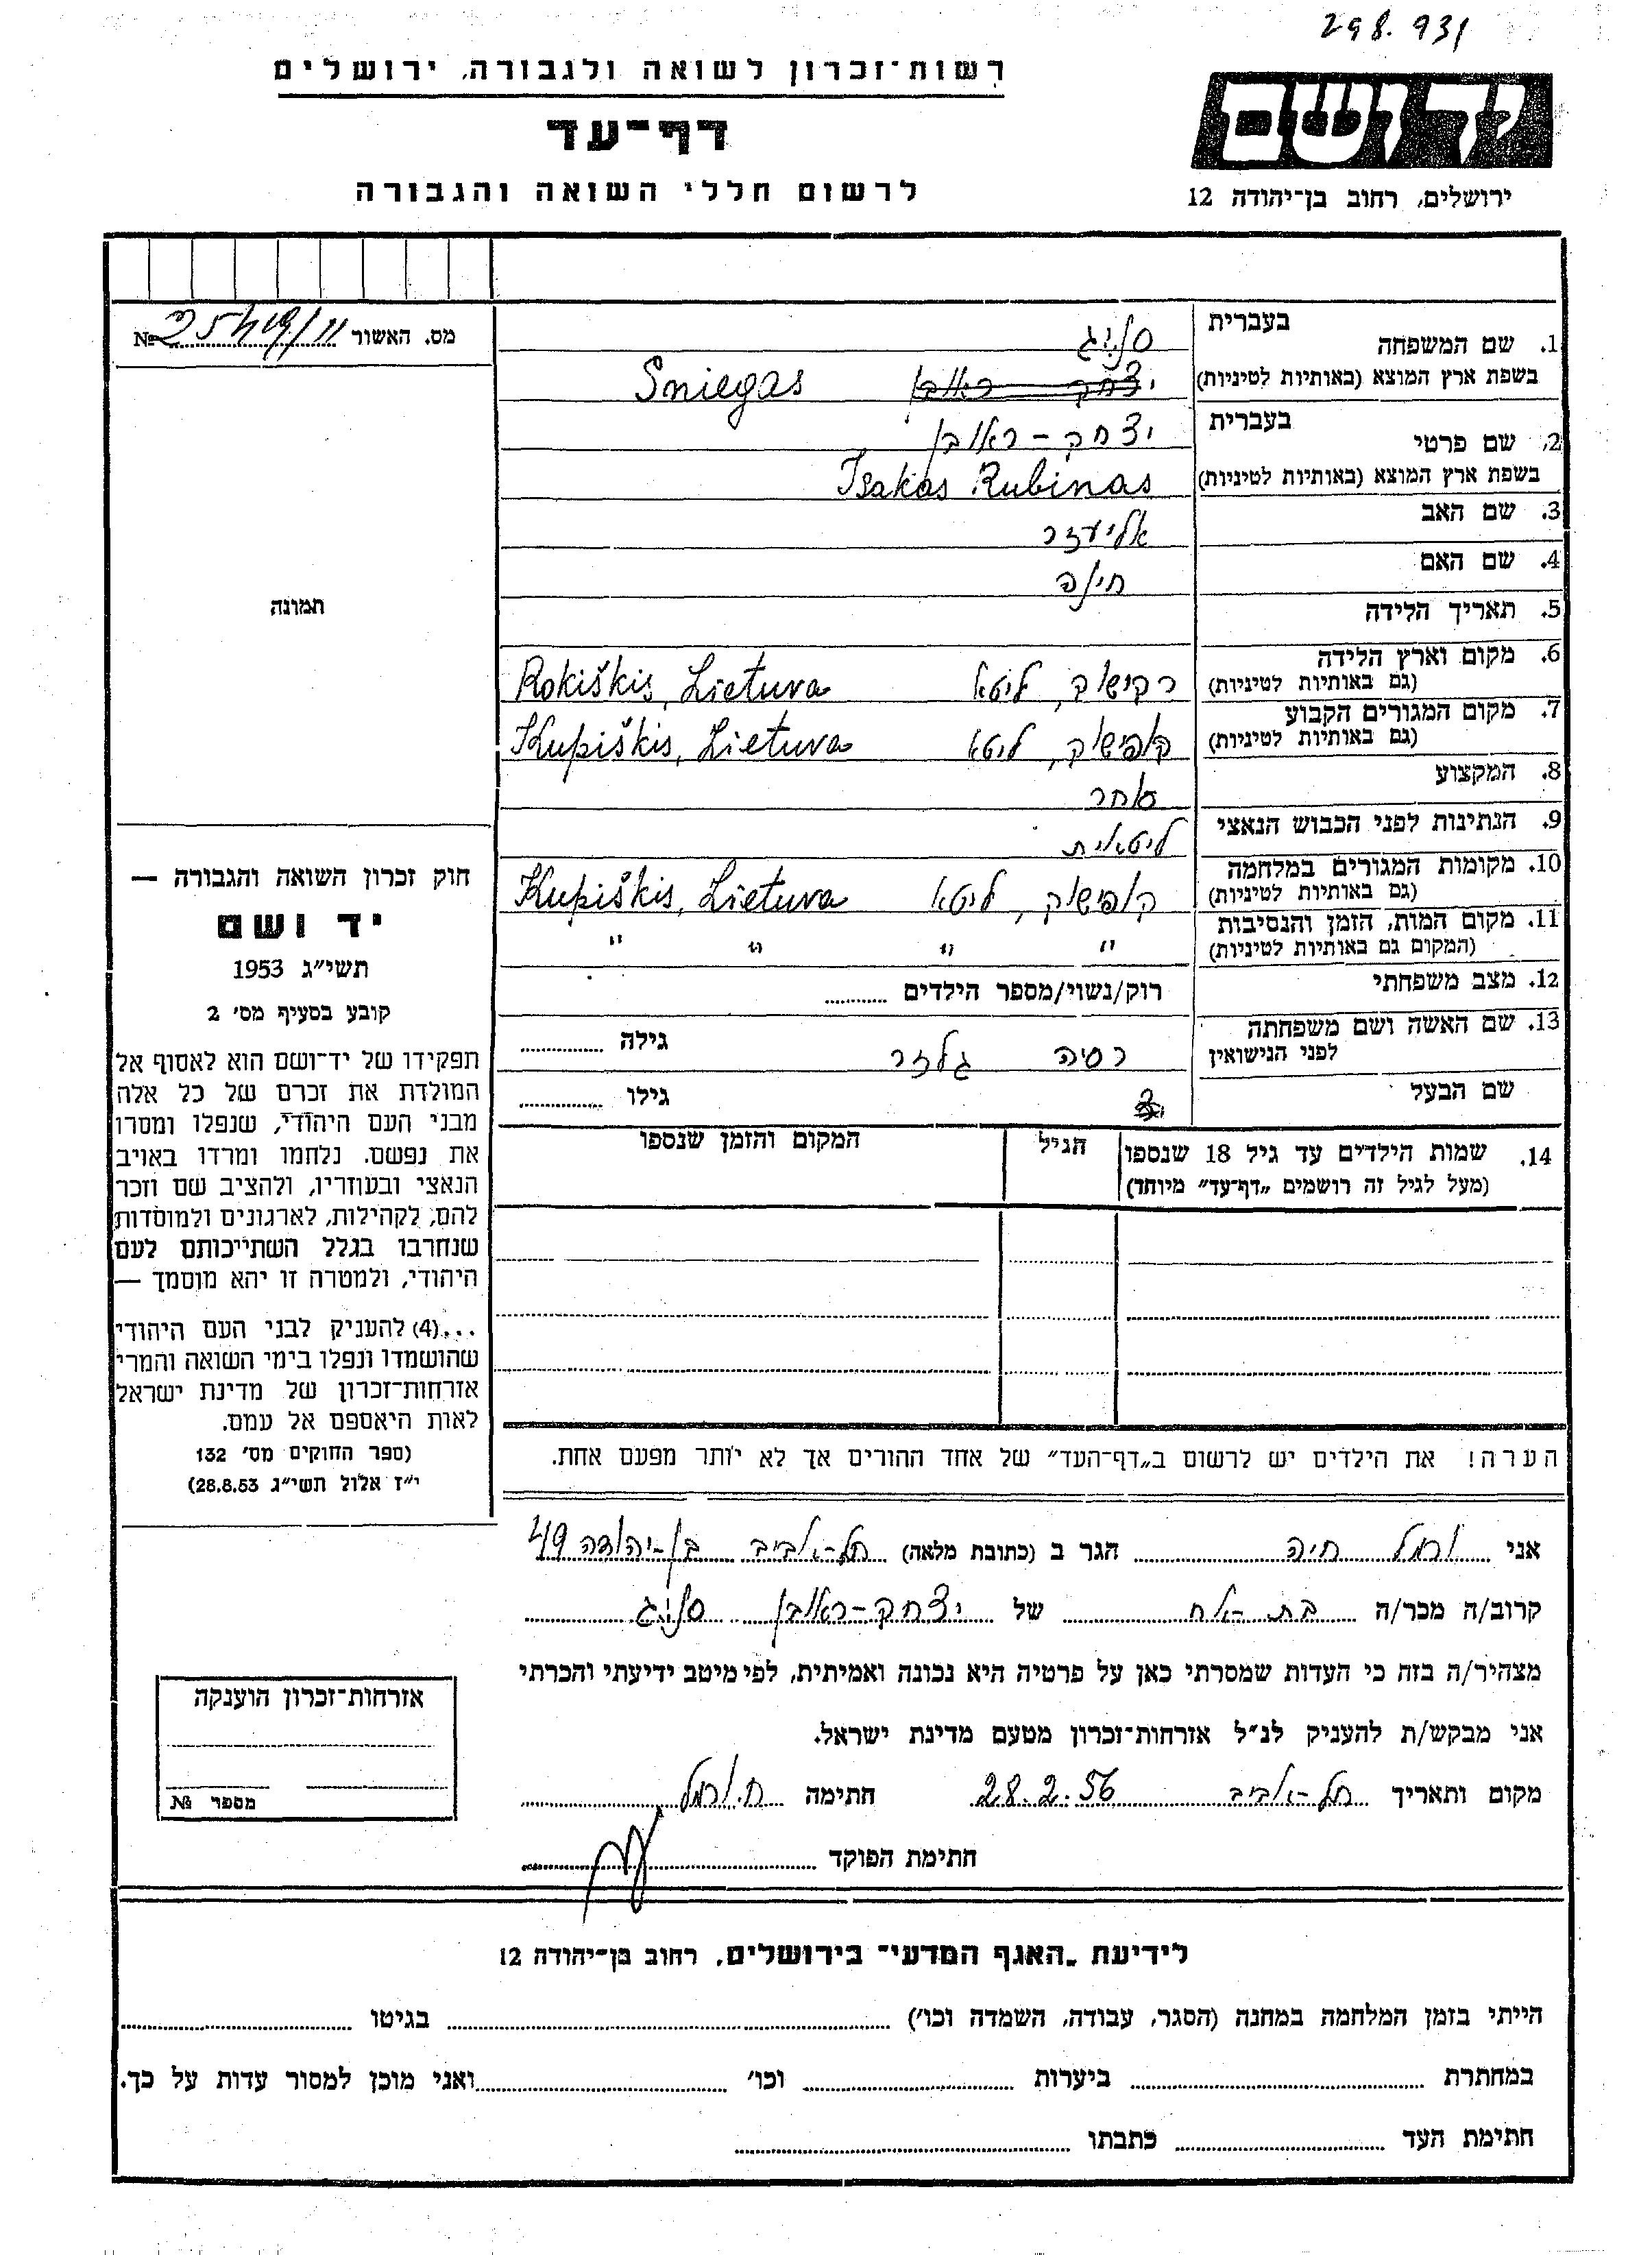 298.931
רשות־זכרון לשואה ולגבורה, ירושלים
דף־עד
לרשום חללי השואה והגבורה
יד ושם
ירושלים, רחוב בן־יהודה 12
מס. האשור №
תמונה
חוק זכרון השואה והגבורה —
יד ושם
תשי״ג 1953
קובע בסעיף מס׳ 2
תפקידו של יד־ושם הוא לאסוף אל
המולדת את זכרם של כל אלה
מבני העם היהודי, שנפלו ומסרו
את נפשם, נלחמו ומרדו באויב
הנאצי ובעוזריו, ולהציב שם וזכר
להם, לקהילות, לארגונים ולמוסדות
שנחרבו בגלל השתייכותם לעם
היהודי, ולמטרה זו יהא מוסמך —
...(4) להעניק לבני העם היהודי
שהושמדו ונפלו בימי השואה והמרי
אזרחות־זכרון של מדינת ישראל
לאות היאספם אל עמם.
(ספר החוקים מס׳ 132
י״ז אלול תשי״ג 28.8.53)
1. שם המשפחה בעברית סניג
בשפת ארץ המוצא (באותיות לטיניות) יצחק ראובן Sniegas
2. שם פרטי בעברית יצחק - ראובן
בשפת ארץ המוצא (באותיות לטיניות) Isakas Rubinas
3. שם האב אליעזר
4. שם האם חינה
5. תאריך הלידה
6. מקום וארץ הלידה (גם באותיות לטיניות) רקישוק, ליטא Rokiškis, Lietuva
7. מקום המגורים הקבוע (גם באותיות לטיניות) קופישוק, ליטא Kupiškis, Lietuva
8. המקצוע סוחר
9. הנתינות לפני הכבוש הנאצי ליטאית
10. מקומות המגורים במלחמה (גם באותיות לטיניות) קופישוק, ליטא Kupiškis, Lietuva
11. מקום המות, הזמן והנסיבות (המקום גם באותיות לטיניות) ״ ״ ״ ״
12. מצב משפחתי רוק/נשוי/מספר הילדים
13. שם האשה ושם משפחתה לפני הנישואין רסיה גלזר גילה
שם הבעל גילו
14. שמות הילדים עד גיל 18 שנספו (מעל לגיל זה רושמים „דף־עד״ מיוחד) הגיל המקום והזמן שנספו
הערה! את הילדים יש לרשום ב„דף־העד״ של אחד ההורים אך לא יותר מפעם אחת.
אני ורמל חיה הגר ב (כתובת מלאה) תל-אביב בן-יהודה 49
קרוב/ה מכר/ה בת-אח של יצחק-ראובן סניג
מצהיר/ה בזה כי העדות שמסרתי כאן על פרטיה היא נכונה ואמיתית, לפי מיטב ידיעתי והכרתי
אני מבקש/ת להעניק לנ״ל אזרחות־זכרון מטעם מדינת ישראל.
מקום ותאריך תל-אביב 28.2.56 חתימה ח. ורמל
חתימת הפוקד
אזרחות־זכרון הוענקה
מספר №
לידיעת „האגף המדעי״ בירושלים, רחוב בן־יהודה 12
הייתי בזמן המלחמה במחנה (הסגר, עבודה, השמדה וכו׳) בגיטו
במחתרת ביערות וכו׳ ואני מוכן למסור עדות על כך.
חתימת העד כתבתו